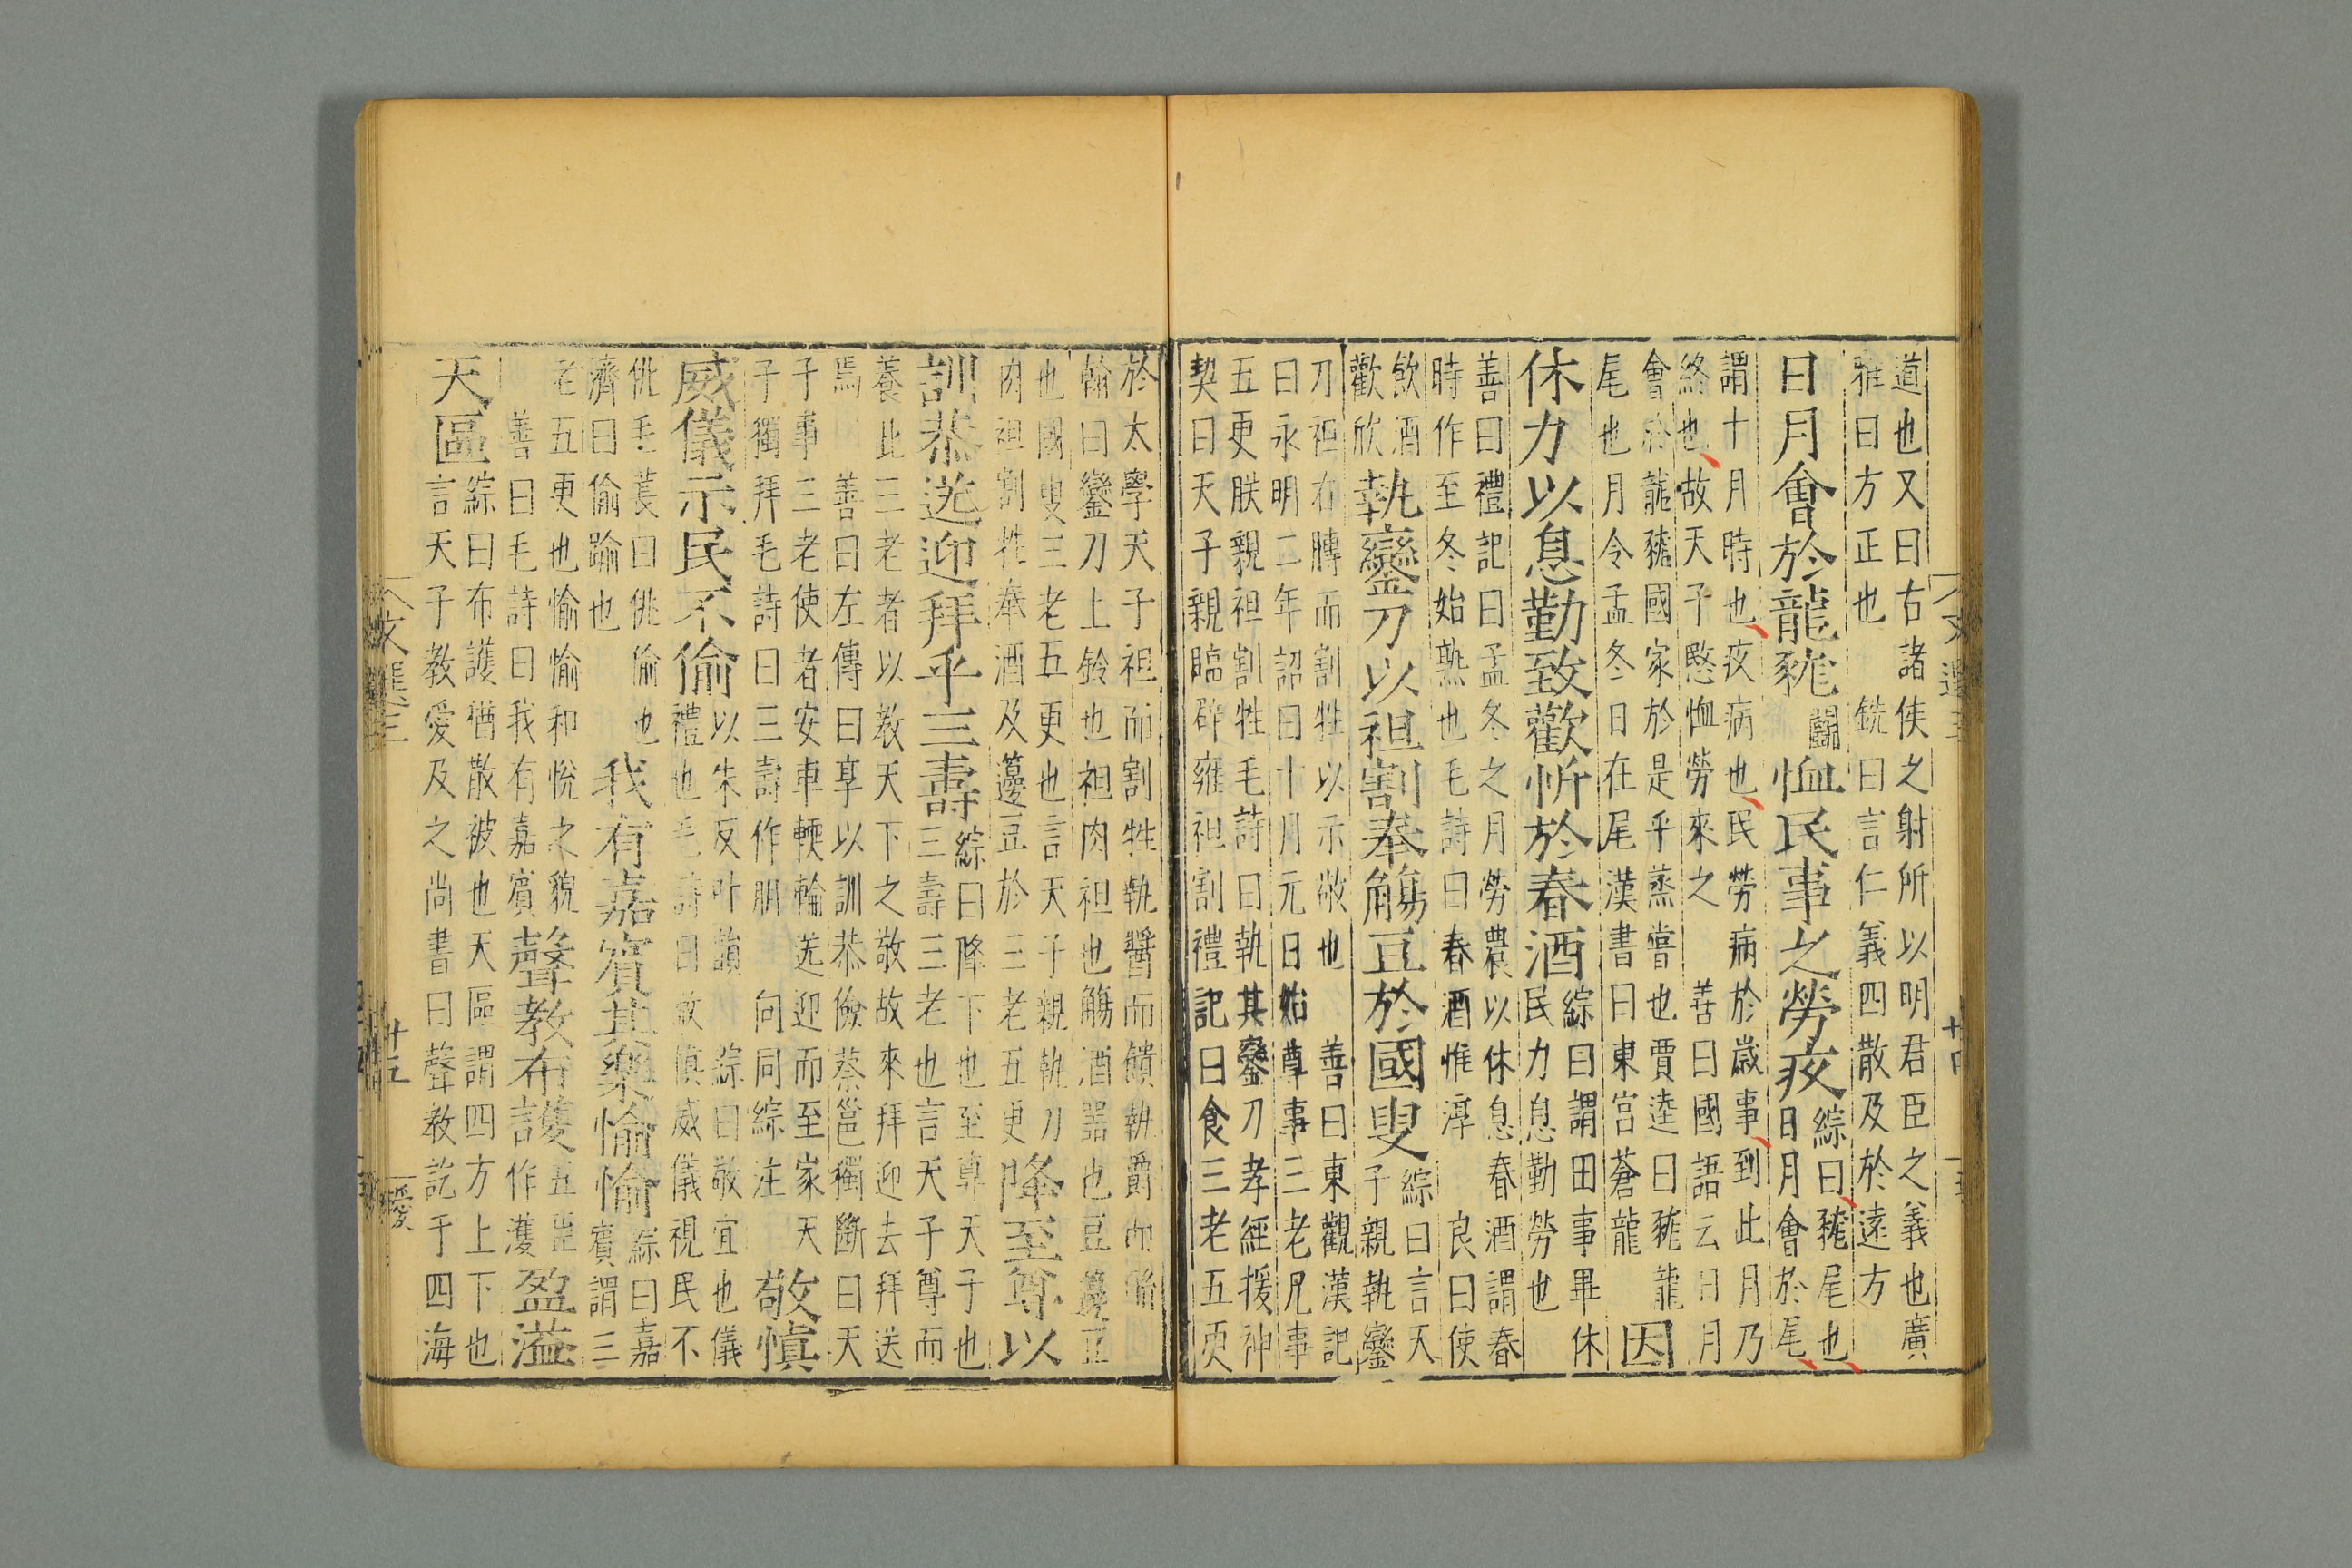 道也又曰古諸侯之射所以明君臣之義也廣
雅曰方正也 銑曰言仁義四散及於遠方
日月會於龍𧱓鬬恤民事之勞疚
綜曰𧱓尾也
日月會於尾
謂十月時也疚病也民勞病於歲事到此月乃
終也故天子愍恤勞來之 善曰國語云日月
會於龍𧱓國家於是乎蒸嘗也賈逵曰𧱓龍
尾也月令孟冬日在尾漢書曰東宮蒼龍
因
休力以息勤致歡忻於春酒
綜曰謂田事畢休
民力息勤勞也
善曰禮記曰孟冬之月勞農以休息春酒謂春
時作至冬始熟也毛詩曰春酒惟淳 良曰使
飲酒
歡欣
執鑾刀以袒割奉觴豆於國叟
綜曰言天
子親執鑾
刀袒右膊而割牲以示敬也 善曰東觀漢記
曰永明二年詔曰十月元日始尊事三老兄事
五更朕親袒割牲毛詩曰執其鑾刀孝經援神
契曰天子親臨辟雍袒割禮記曰食三老五更
於太學天子袒而割牲執醬而饋執爵而酳
翰曰鑾刀上鈴也袒肉袒也觴酒器也豆籩豆
也國叟三老五更也言天子親執刀
肉袒割牲奉酒及籩豆於三老五更
降至尊以
訓恭送迎拜乎三壽
綜曰降下也至尊天子也
三壽三老也言天子尊而
養此三老者以教天下之敬故來拜迎去拜送
焉 善曰左傳曰享以訓恭儉蔡邕獨斷曰天
子事三老使者安車輭輪送迎而至家天
子獨拜毛詩曰三壽作朋 向同綜注
敬慎
威儀示民不偷
以朱反叶韻 綜曰敬宜也儀
禮也毛詩曰敬慎威儀視民不
佻毛萇曰佻偷也
濟曰偷踰也
我有嘉賓其樂愉愉
綜曰嘉
賓謂三
老五更也愉愉和悅之貌
善曰毛詩曰我有嘉賓
聲教布護
五臣
作濩
盈溢
天區
綜曰布護猶散被也天區謂四方上下也
言天子教愛及之尚書曰聲教訖于四海